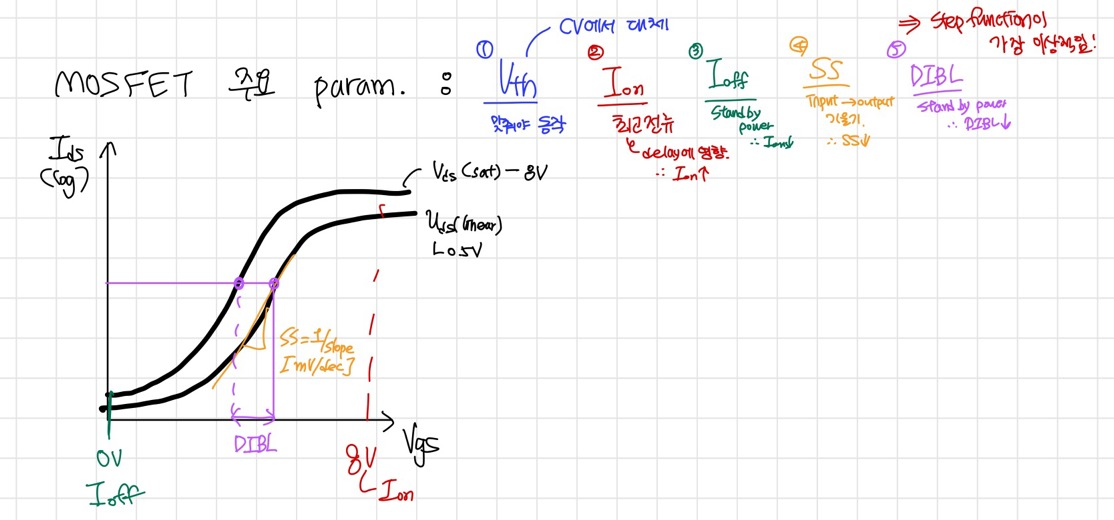 ⇒ Step function이
가장 이상적임!
CV에서 대체
MOSFET 주요 param. :
① Vth
맞춰야 동작
② Ion
최고전류
delay에 영향.
∴ Ion↑
③ Ioff
Standby
power
④ SS
Input → output
기울기.
∴ SS↓
⑤ DIBL
Stand by power
∴ DIBL↓
Ids
(log)
Vds (sat) - 8V
Vds (linear)
0.5V
SS = 1/slope
[mV/dec]
DIBL
Vgs
0V
Ioff
8V
Ion